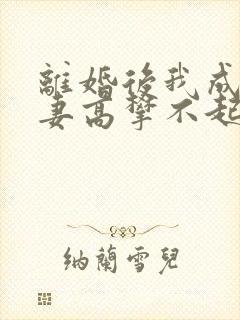 離婚後我成
妻高攀不起
納蘭雪兒